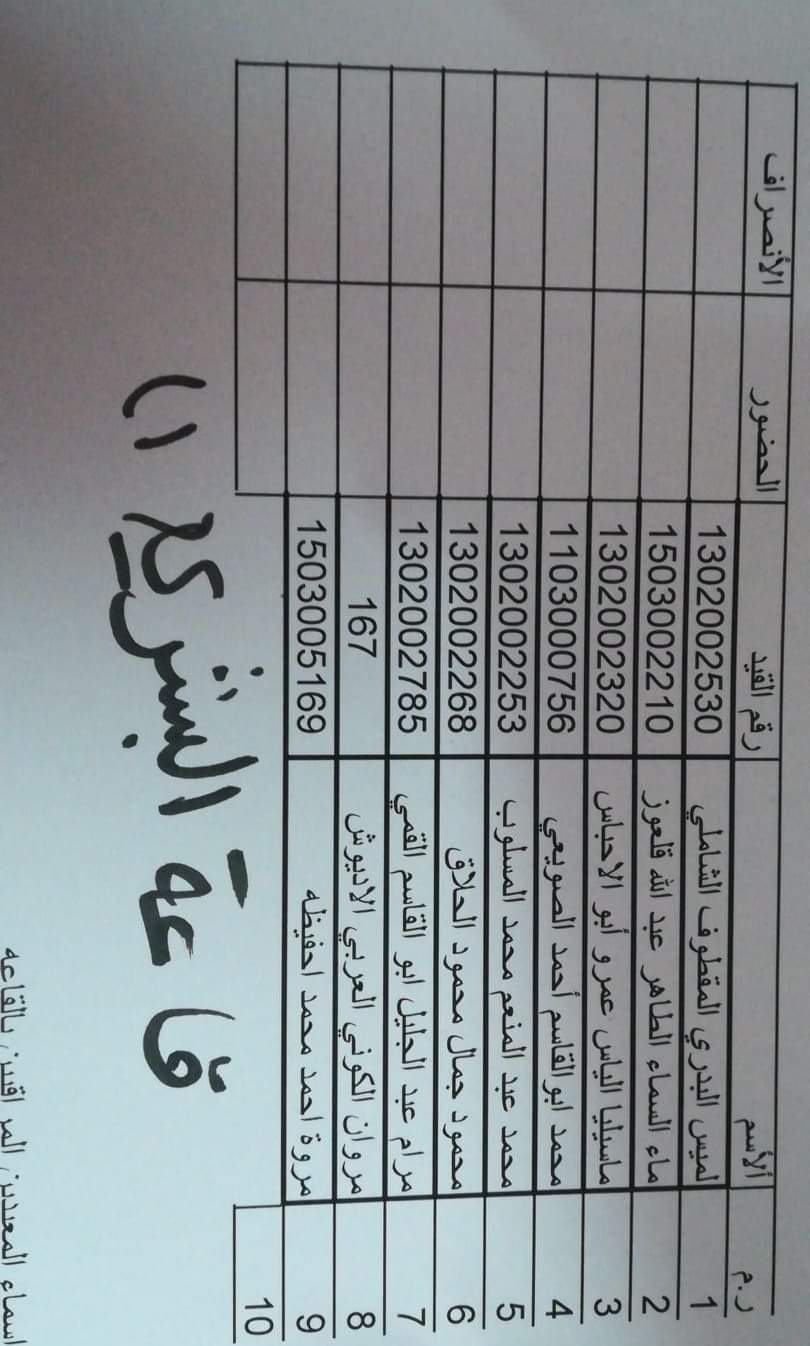 ر.م الأسم رقم القيد الحضور الأنصراف
1 لميس البدري المقطوف الشاملي 1302002530
2 ماء السماء الطاهر عبد الله قلعوز 1503002210
3 ماسيليا الياس عمرو أبو الاحباس 1302002320
4 محمد ابو القاسم أحمد الصويعي 1103000756
5 محمد عبد المنعم محمد المسلوب 1302002253
6 محمود جمال محمود الحلاق 1302002268
7 مرام عبد الجليل ابو القاسم القمي 1302002785
8 مروان الكوني العربي الاديوش 167
9 مروة احمد محمد احفيظه 1503005169
10
قاعة التشريح (1)
اسماء المعيدين المراقبين بالقاعه